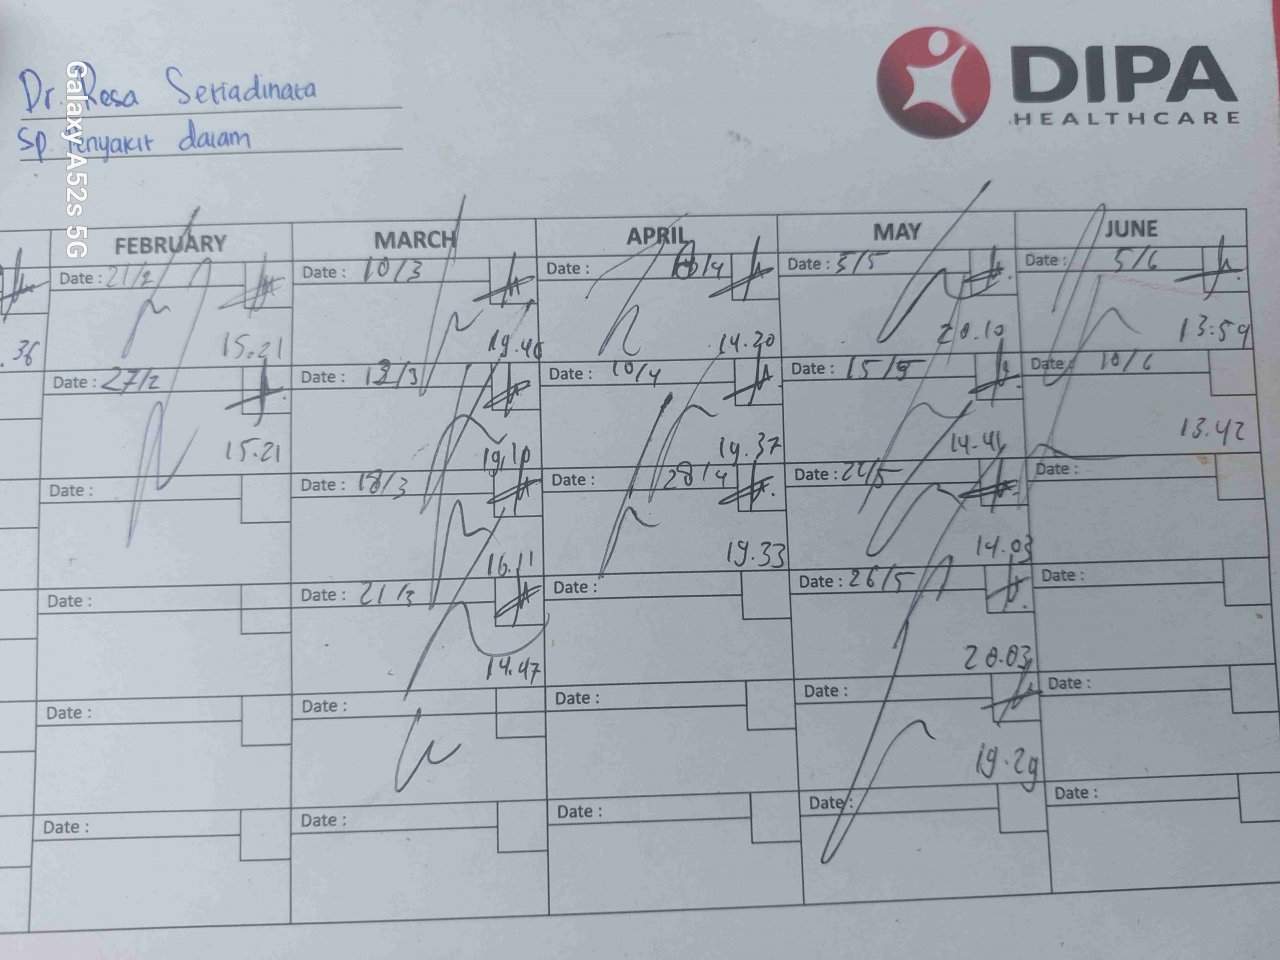 Dr. Resa Setiadinata
Sp. Penyakit dalam
DIPA
HEALTHCARE
Galaxy A52s 5G
FEBRUARY MARCH APRIL MAY JUNE
Date : 21/2 Date : 10/3 Date : Date : 5/6
.36 15.21 19.46 14.20 20.10 13:59
Date : 27/2 Date : Date : 10/4 Date : 15/5 Date : 10/6
15.21 19.10 19.37 14.41 13.42
Date : Date : 18/3 Date : 28/4 Date : Date :
16.11 19.33 14.03
Date : Date : 21/3 Date : Date : 26/5 Date :
14.47 20.03
Date : Date : Date : Date : Date :
19.29
Date : Date : Date : Date : Date :